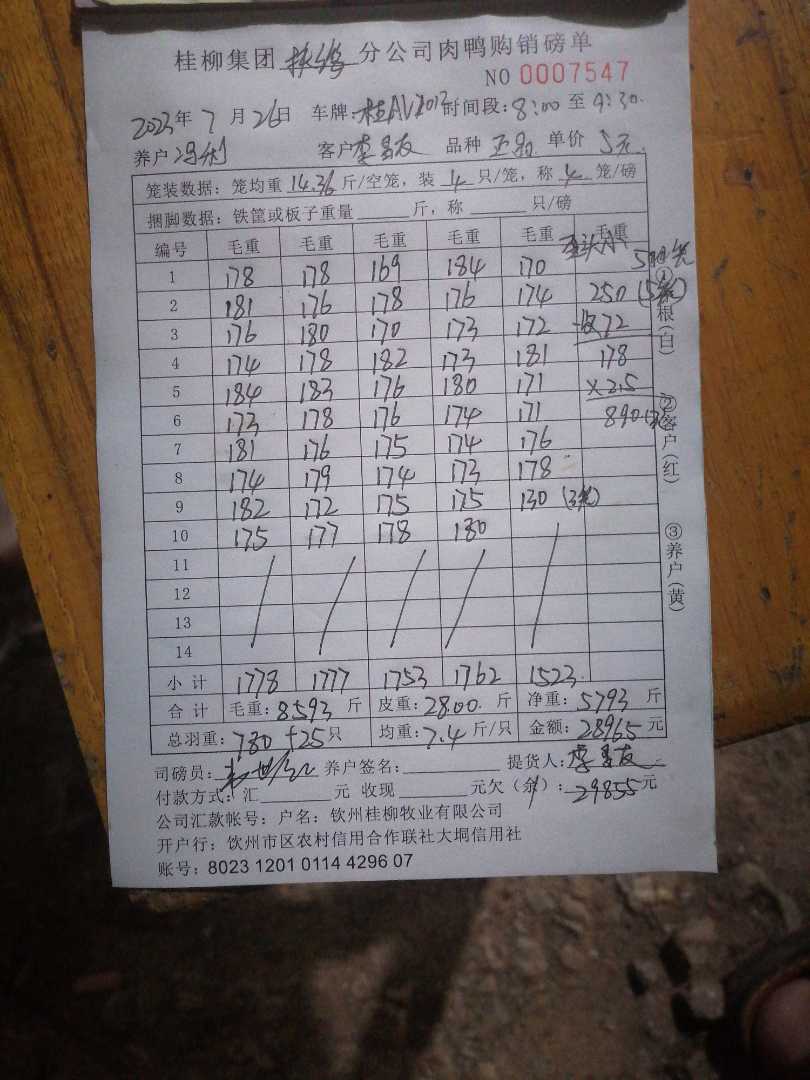 桂柳集团 扶绥 分公司肉鸭购销磅单
NO 0007547
2023年 7 月 26日 车牌: 桂AV2013 时间段: 8:00 至 9:30.
养户 冯利 客户 李易友 品种 单价 5元
笼装数据: 笼均重 14.36 斤/空笼, 装 4 只/笼, 称 4 笼/磅
捆脚数据: 铁筐或板子重量 斤, 称 只/磅
编号 毛重 毛重 毛重 毛重 毛重 毛重
1 178 178 169 184 170
2 181 176 178 176 174 250 (5笼)
3 176 180 170 173 172 72
4 174 178 182 173 181 178
5 184 183 176 180 171 ×2.5
6 173 178 176 174 171 890
7 181 176 175 174 176
8 174 179 174 173 178
9 182 172 175 175 130 (3笼)
10 175 177 178 180
11
12
13
14
小计 1778 1777 1753 1762 1523.
合计 毛重: 8593 斤 皮重: 2800. 斤 净重: 5793 斤
总羽重: 780 +25 只 均重: 7.4 斤/只 金额: 28965 元
司磅员: 养户签名: 提货人: 李易友
付款方式: 汇 元 收现 元欠 (余): 29855 元
公司汇款帐号: 户名: 钦州桂柳牧业有限公司
开户行: 钦州市区农村信用合作联社大垌信用社
账号: 8023 1201 0114 4296 07
①存根(白)
②客户(红)
③养户(黄)